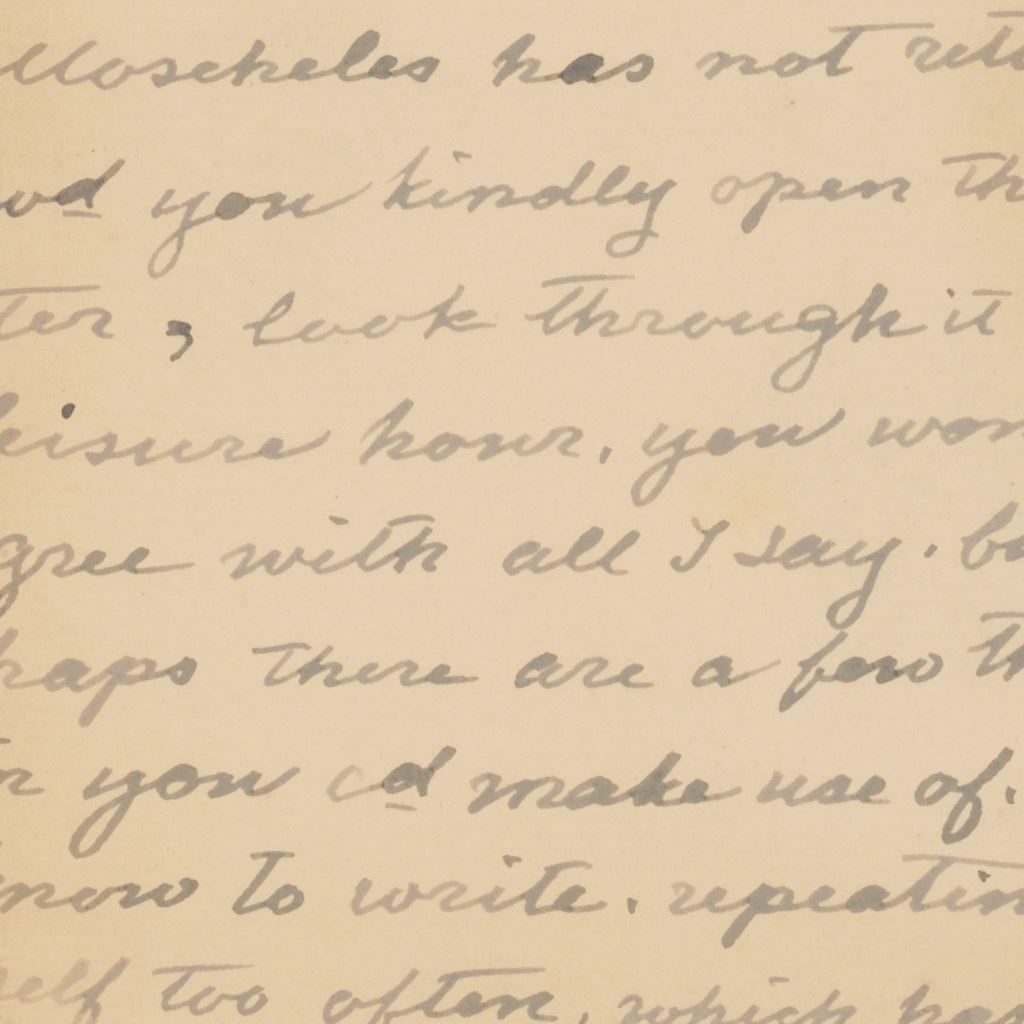 Moscheles has not retu
wd you kindly open th
ter, look through it
leisure hour. you won
gree with all I say. bu
haps there are a few th
you cd make use of.
know to write. repeatin
self too often, which has